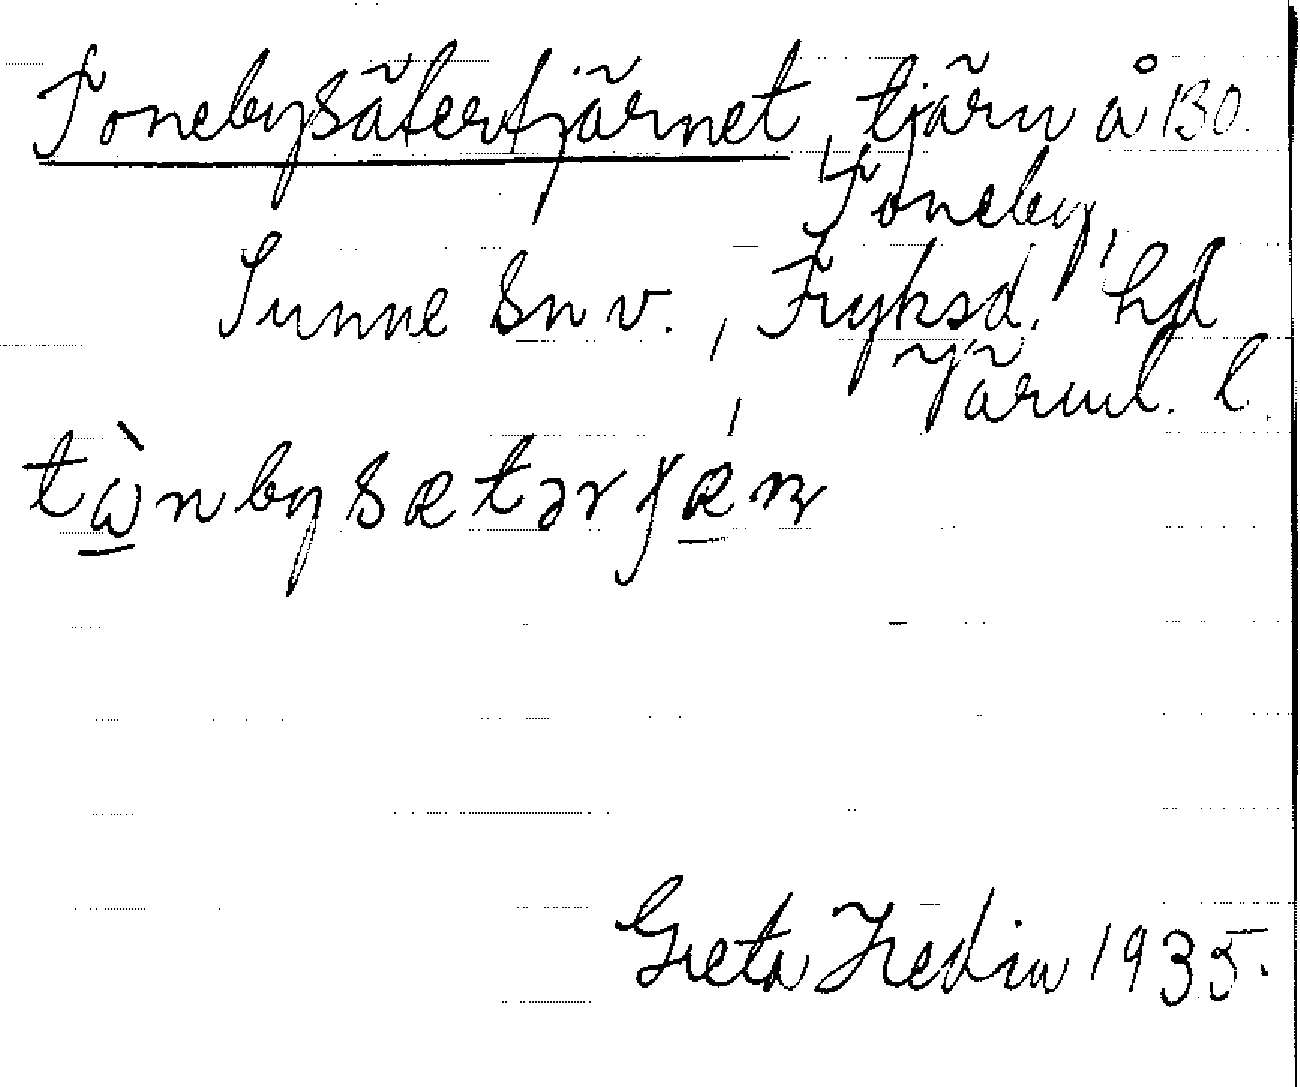 Tonebysätertjärnet, tjärn å BO.
Toneby,
Sunne sn v., Fryksd. hd
Värml. l.
tὼnbysætərʃǽrn
Greta Hedin 1935.